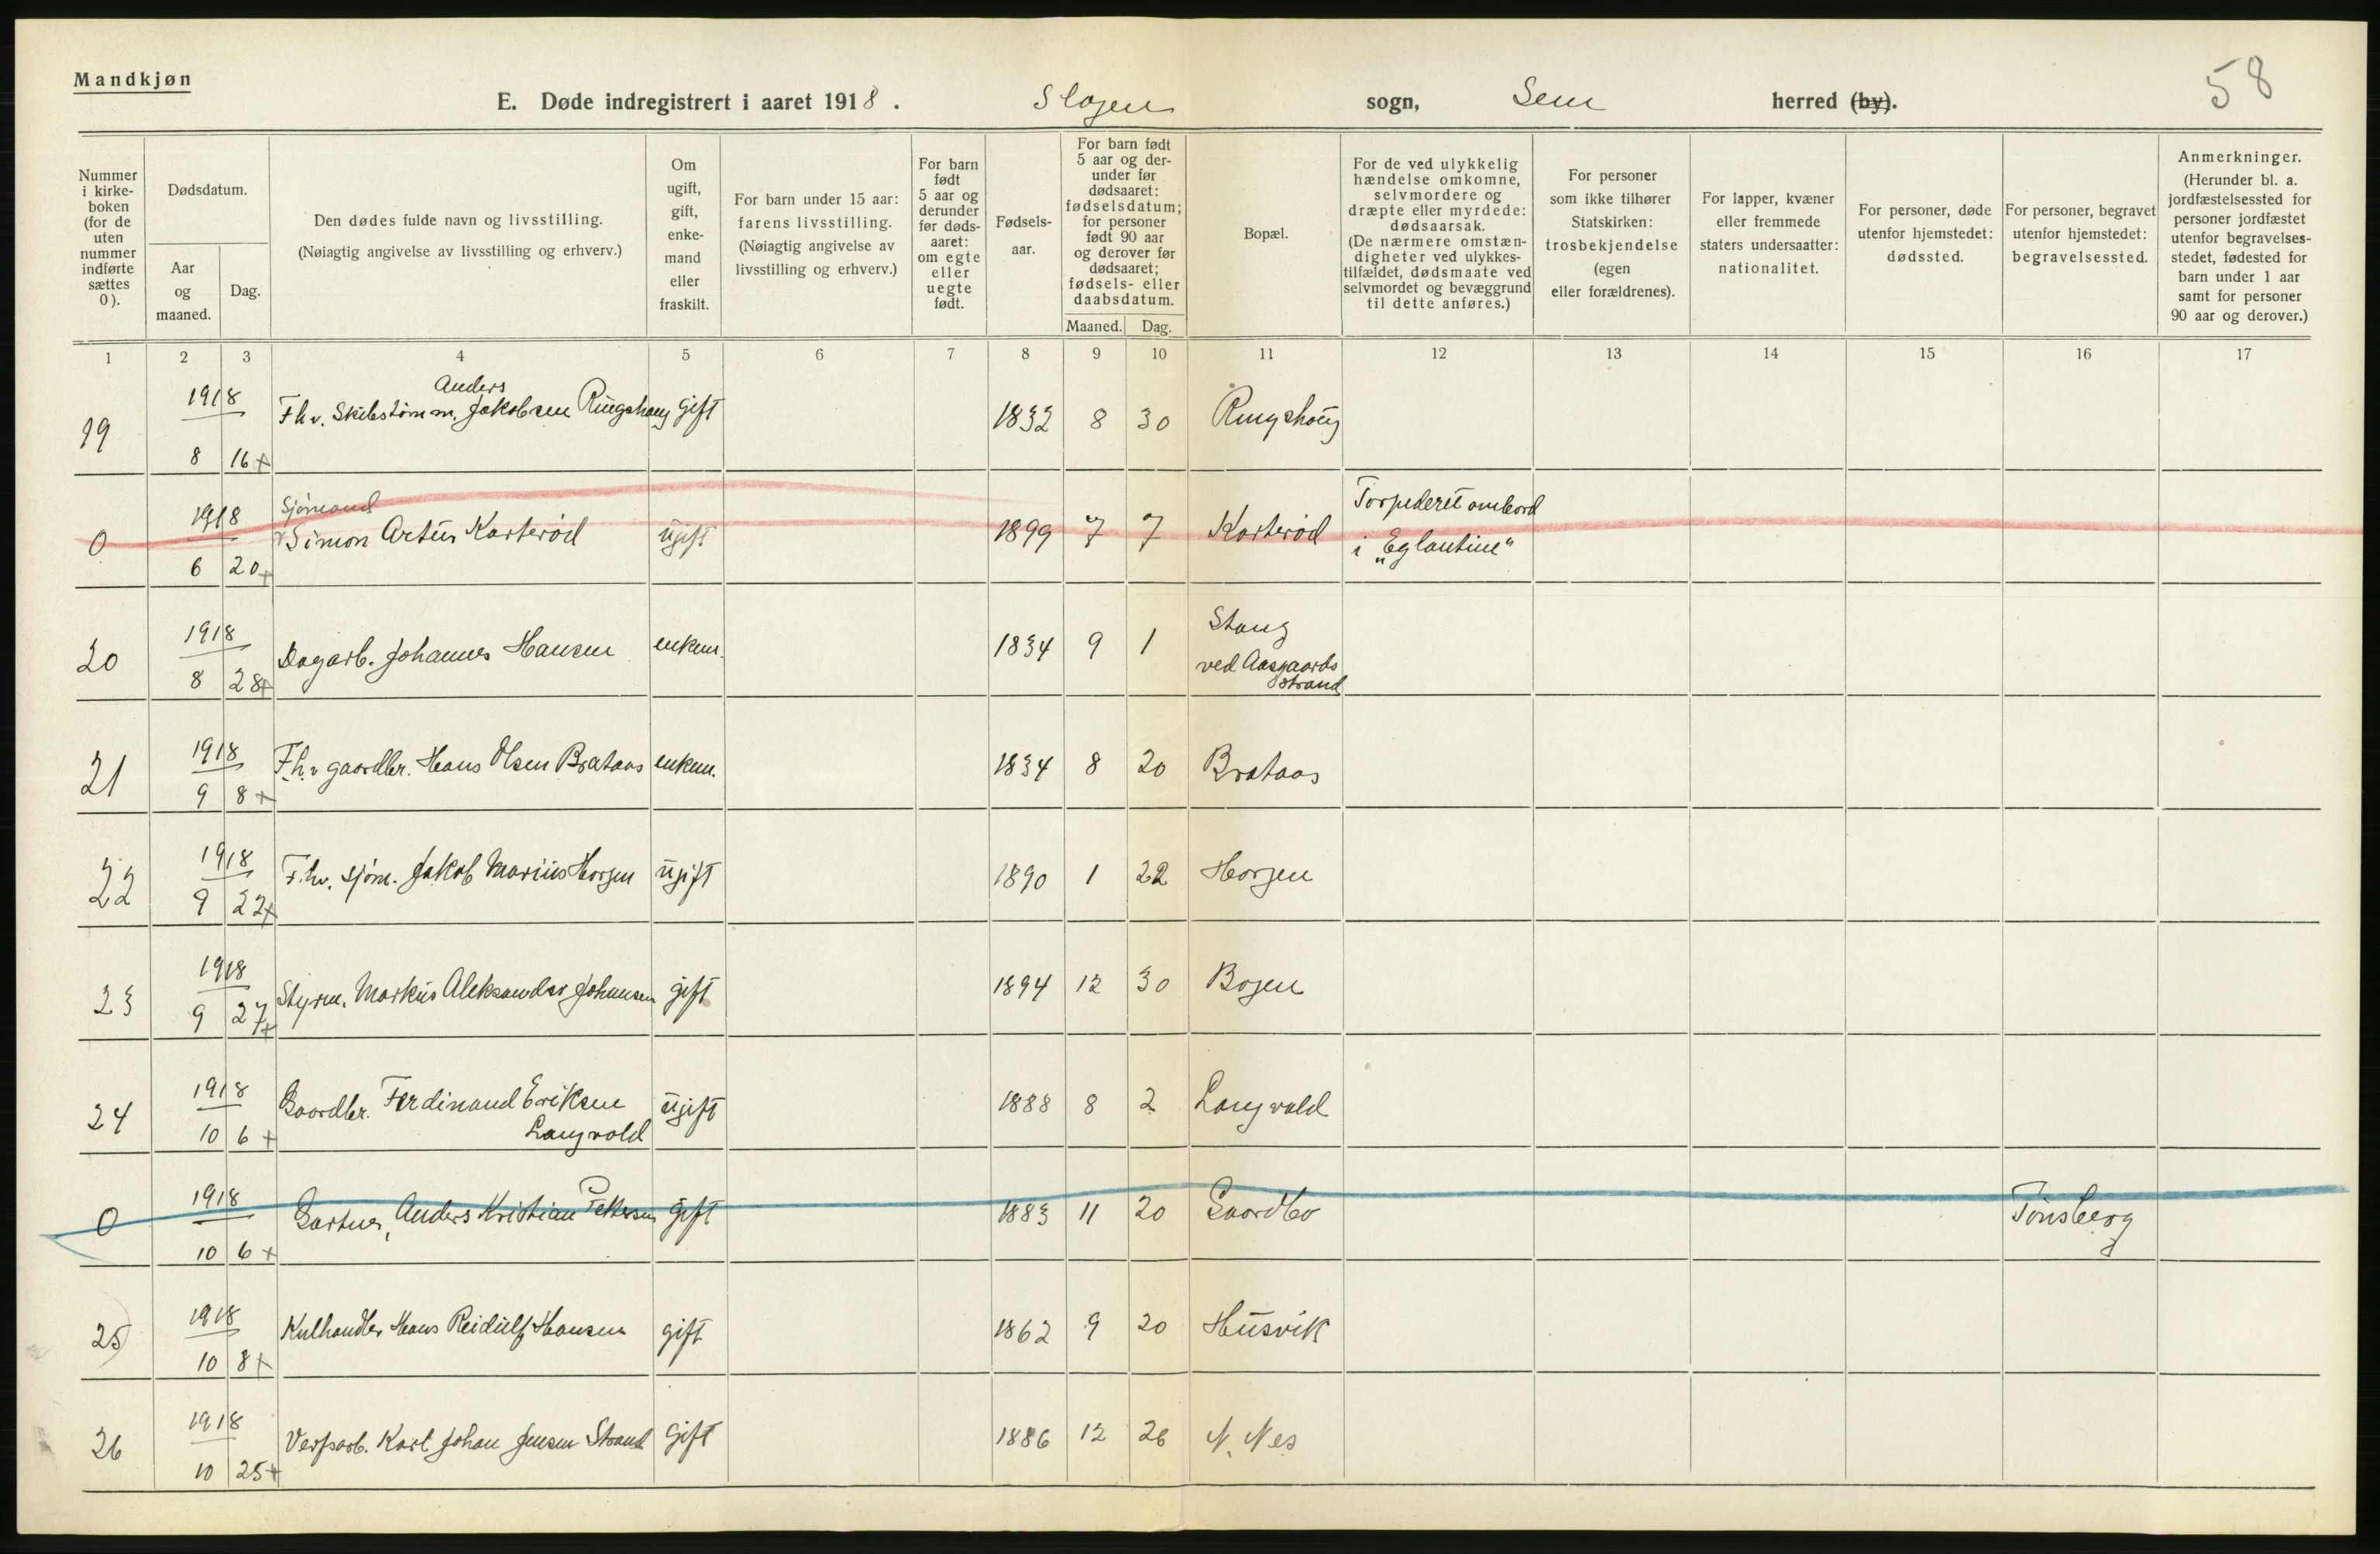 Mandkjøn
E. Døde indregistrert i aaret 1918. Slagen sogn, Sem herred (by).
58
Nummer i kirke-boken (for de uten nummer indførte sættes 0).
Dødsdatum.
Aar og maaned.
Dag.
Den dødes fulde navn og livsstilling.
(Nøiagtig angivelse av livsstilling og erhverv.)
Om ugift, gift, enke-mand eller fraskilt.
For barn under 15 aar: farens livsstilling.
(Nøiagtig angivelse av livsstilling og erhverv.)
For barn født 5 aar og derunder før døds-aaret: om egte eller uegte født.
Fødsels-aar.
For barn født 5 aar og der-under før dødsaaret: fødselsdatum; for personer født 90 aar og derover før dødsaaret; fødsels- eller daabsdatum.
Maaned.
Dag.
Bopæl.
For de ved ulykkelig hændelse omkomne, selvmordere og dræpte eller myrdede: dødsaarsak.
(De nærmere omstæn-digheter ved ulykkes-tilfældet, dødsmaate ved selvmordet og bevæggrund til dette anføres.)
For personer som ikke tilhører Statskirken: trosbekjendelse (egen eller forældrenes).
For lapper, kvæner eller fremmede staters undersaatter: nationalitet.
For personer, døde utenfor hjemstedet: dødssted.
For personer, begravet utenfor hjemstedet: begravelsessted.
Anmerkninger.
(Herunder bl. a. jordfæstelsessted for personer jordfæstet utenfor begravelses-stedet, fødested for barn under 1 aar samt for personer 90 aar og derover.)
1 2 3 4 5 6 7 8 9 10 11 12 13 14 15 16 17
Anders
19 1918 8 16 + F.h.v. Skibstømm. Jakobsen Ringshaug gift 1832 8 30 Ringshoug
Sjømand Torpederet ombord
0 1918 6 20 + Simon Artur Karterød ugift 1899 7 7 Karterød i „Eglantine"
20 1918 8 28 + Dagarb. Johannes Hansen enkem. 1834 9 1 Stang
ved Aasgaards
strand
21 1918 9 8 + F.h.v gaardbr. Hans Olsen Brataas enkem. 1834 8 20 Brataas
22 1918 9 22 + F.hv. sjøm. Jakob Marius Horgen ugift 1890 1 22 Horgen
23 1918 9 27 + Styrm. Markus Aleksander Johansen gift 1894 12 30 Bogen
24 1918 10 6 + Gaardbr. Ferdinand Eriksen ugift 1888 8 2 Langvold
Langvold
0 1918 10 6 + Gartner, Anders Kristian Pettersen gift 1883 11 20 Gaardbo Tønsberg
25 1918 10 8 + Kulhandler Hans Reidulf Hansen gift 1862 9 20 Husvik
26 1918 10 25 + Verfsarb. Karl Johan Jensen Strand gift 1886 12 26 N. Nes